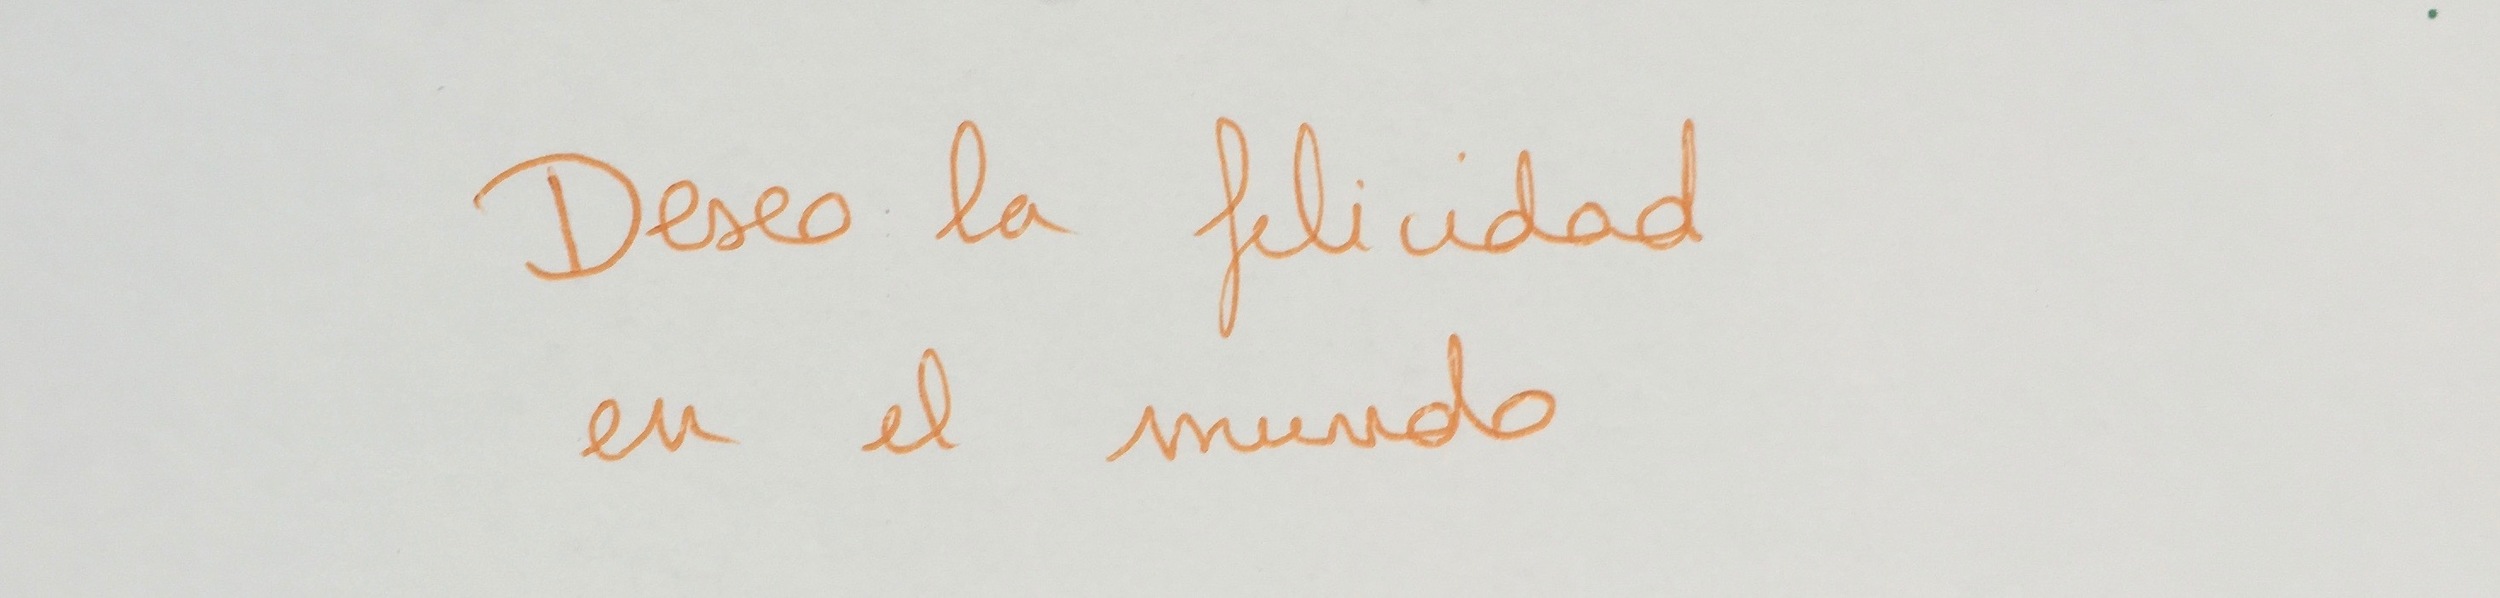 Deseo la felicidad
en el mundo